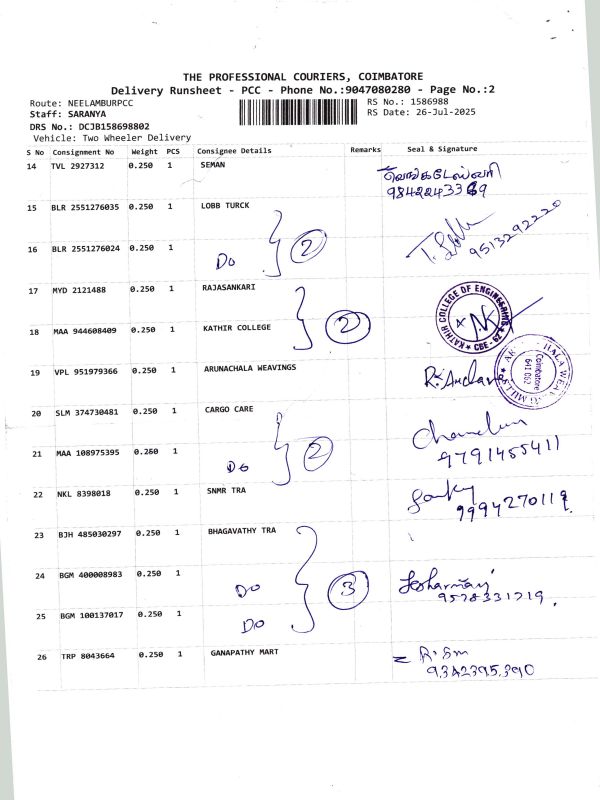 THE PROFESSIONAL COURIERS, COIMBATORE
Delivery Runsheet - PCC - Phone No.:9047080280 - Page No.:2
Route: NEELAMBURPCC RS No.: 1586988
Staff: SARANYA RS Date: 26-Jul-2025
DRS No.: DCJB158698802
Vehicle: Two Wheeler Delivery
S No Consignment No Weight PCS Consignee Details Remarks Seal & Signature
14 TVL 2927312 0.250 1 SEMAN
15 BLR 2551276035 0.250 1 LOBB TURCK
9513292220
16 BLR 2551276024 0.250 1 Do 2
17 MYD 2121488 0.250 1 RAJASANKARI
KATHIR COLLEGE OF ENGINEERING
18 MAA 944608409 0.250 1 KATHIR COLLEGE 2
19 VPL 951979366 0.250 1 ARUNACHALA WEAVINGS
Coimbatore
641 062
20 SLM 374730481 0.250 1 CARGO CARE
21 MAA 108975395 0.250 1 Do 2 9791455411
22 NKL 8398018 0.250 1 SNMR TRA
9994270119
23 BJH 485030297 0.250 1 BHAGAVATHY TRA
24 BGM 400008983 0.250 1 Do 3
9578331719
25 BGM 100137017 0.250 1 Do
26 TRP 8043664 0.250 1 GANAPATHY MART
9342395390